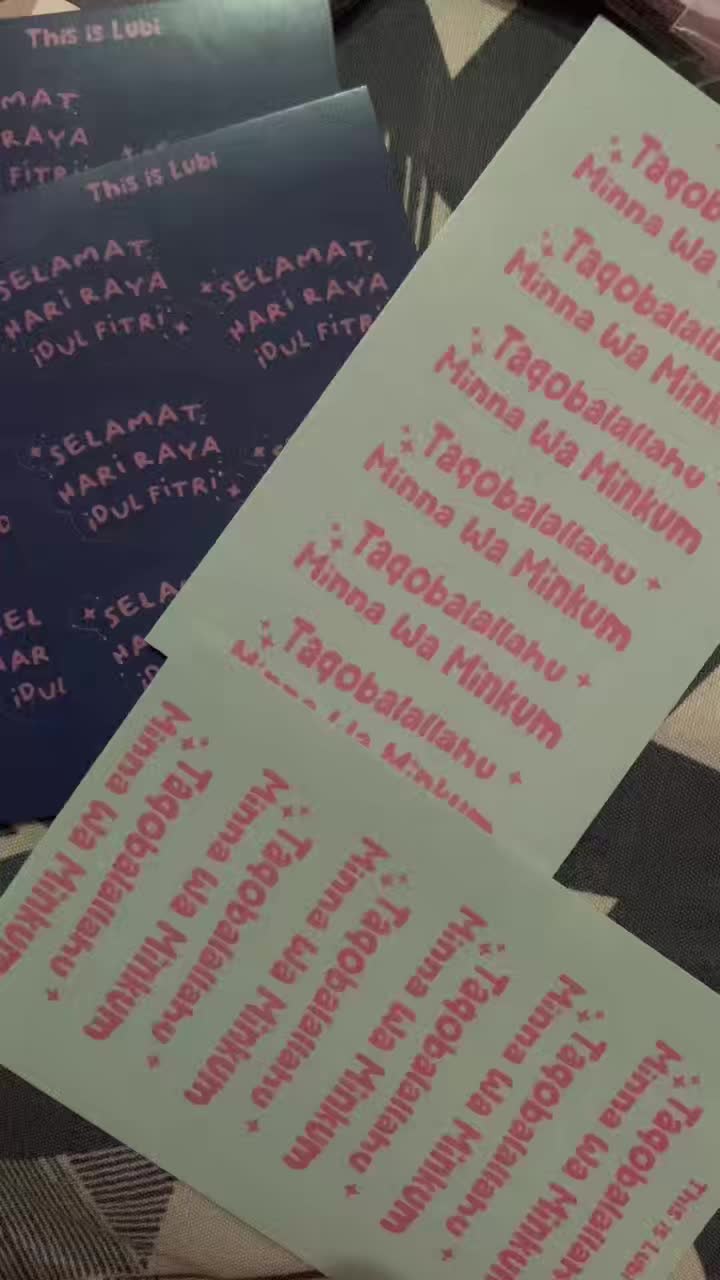 This is Lubi
MAT
RAYA
FITRi
This is Lubi
SELAMAT
HARi RAYA
iDUL FiTRi
SELAMAT
HARi RAYA
iDUL FiTR
SELAMAT
HARi RAYA
iDUL FiTRi
SEL
HAR
iDUL
SELA
HA
iD
Taqoba
Minna Wa
Taqobalall
Minna Wa Mink
Taqobalallahu
Minna Wa Minkum
Taqobalallahu
Minna Wa Minkum
Taqobalallahu
Minna Wa Minkum
Taqobalallahu
Minna Wa Minkum
Taqobalallahu
Minna Wa Minkum
Taqobalallahu
Minna Wa Minkum
Taqobalallahu
Minna Wa Minkum
Taqobalallahu
Minna Wa Minkum
Taqobalallah
Minna Wa Minkum
Taqobalallah
Minna Wa Min
This is Lubi